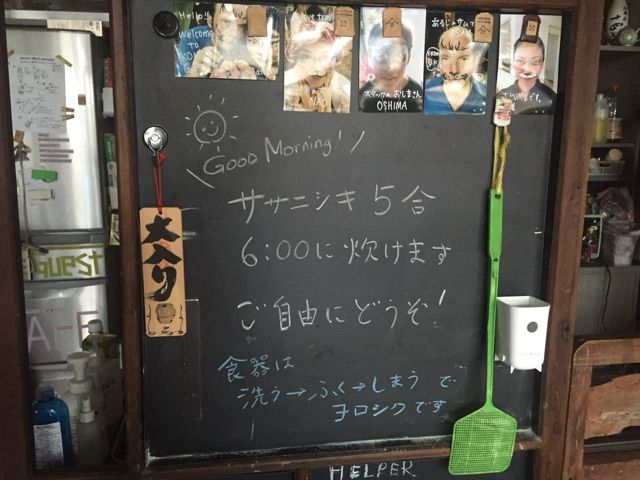 Hello!!
WELCOME
TO
スタッフの おじまさん
OSHIMA
FROM
U.K
Good Morning!
ササニシキ 5合
6:00に 炊けます
ご自由にどうぞ!
大入り
GUEST
食器は
洗う→ふく→しまう で
ヨロシクです
HELPER